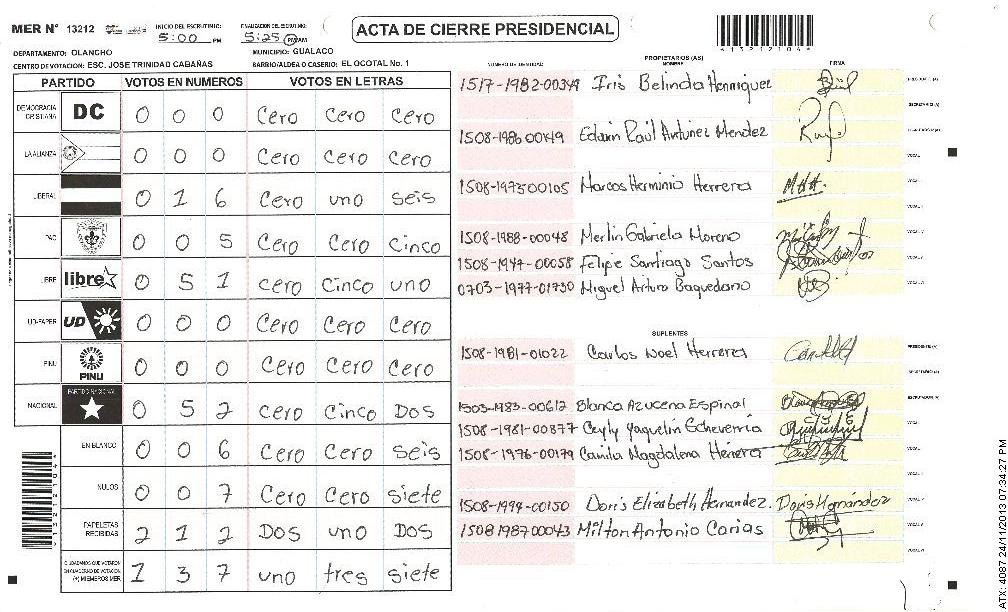 MER N° 13212 INICIO DEL ESCRUTINIO: 5:00 PM FINALIZACION DEL ESCRUTINIO: 5:25 PM/AM
ACTA DE CIERRE PRESIDENCIAL
DEPARTAMENTO: OLANCHO MUNICIPIO: GUALACO
CENTRO DE VOTACION: ESC. JOSE TRINIDAD CABAÑAS BARRIO/ALDEA O CASERIO: EL OCOTAL No. 1
PARTIDO VOTOS EN NUMEROS VOTOS EN LETRAS
DEMOCRACIA CRISTIANA DC 0 0 0 Cero Cero Cero
LA ALIANZA 0 0 0 Cero Cero Cero
LIBERAL 0 1 6 Cero uno seis
PAC 0 0 5 Cero Cero Cinco
LIBRE libre 0 5 1 cero Cinco uno
UD-FAPER UD 0 0 0 Cero Cero Cero
PINU PINU 0 0 0 Cero Cero Cero
NACIONAL PARTIDO NACIONAL 0 5 2 Cero Cinco Dos
EN BLANCO 0 0 6 Cero Cero Seis
NULOS 0 0 7 Cero Cero siete
PAPELETAS RECIBIDAS 2 1 2 Dos uno Dos
CIUDADANOS QUE VOTARON EN CUADERNO DE VOTACION (+) MIEMBROS MER 1 3 7 uno tres siete
NUMERO DE IDENTIDAD PROPIETARIOS (AS) NOMBRE FIRMA
1517-1982-00349 Iris Belinda Henriquez
1508-1986-00419 Edwin Raúl Antunez Mendez
1508-1975-00105 Marcos Herminio Herrera M.H.H.
1508-1988-00048 Merlin Gabriela Moreno
1508-1947-00058 Felipe Santiago Santos
0703-1977-01730 Miguel Arturo Baquedano
SUPLENTES
1508-1981-01022 Carlos Noel Herrera
1503-1983-00612 Blanca Azucena Espinal
1508-1981-00377 Ceyly Yaquelin Echeverria
1508-1976-00179 Camila Magdalena Herrera
1508-1994-00150 Doris Elizabeth Hernandez. Doris Hernández
1508 1987 00043 Milton Antonio Carias
ATX: 4087 24/11/2013 07:34:27 PM